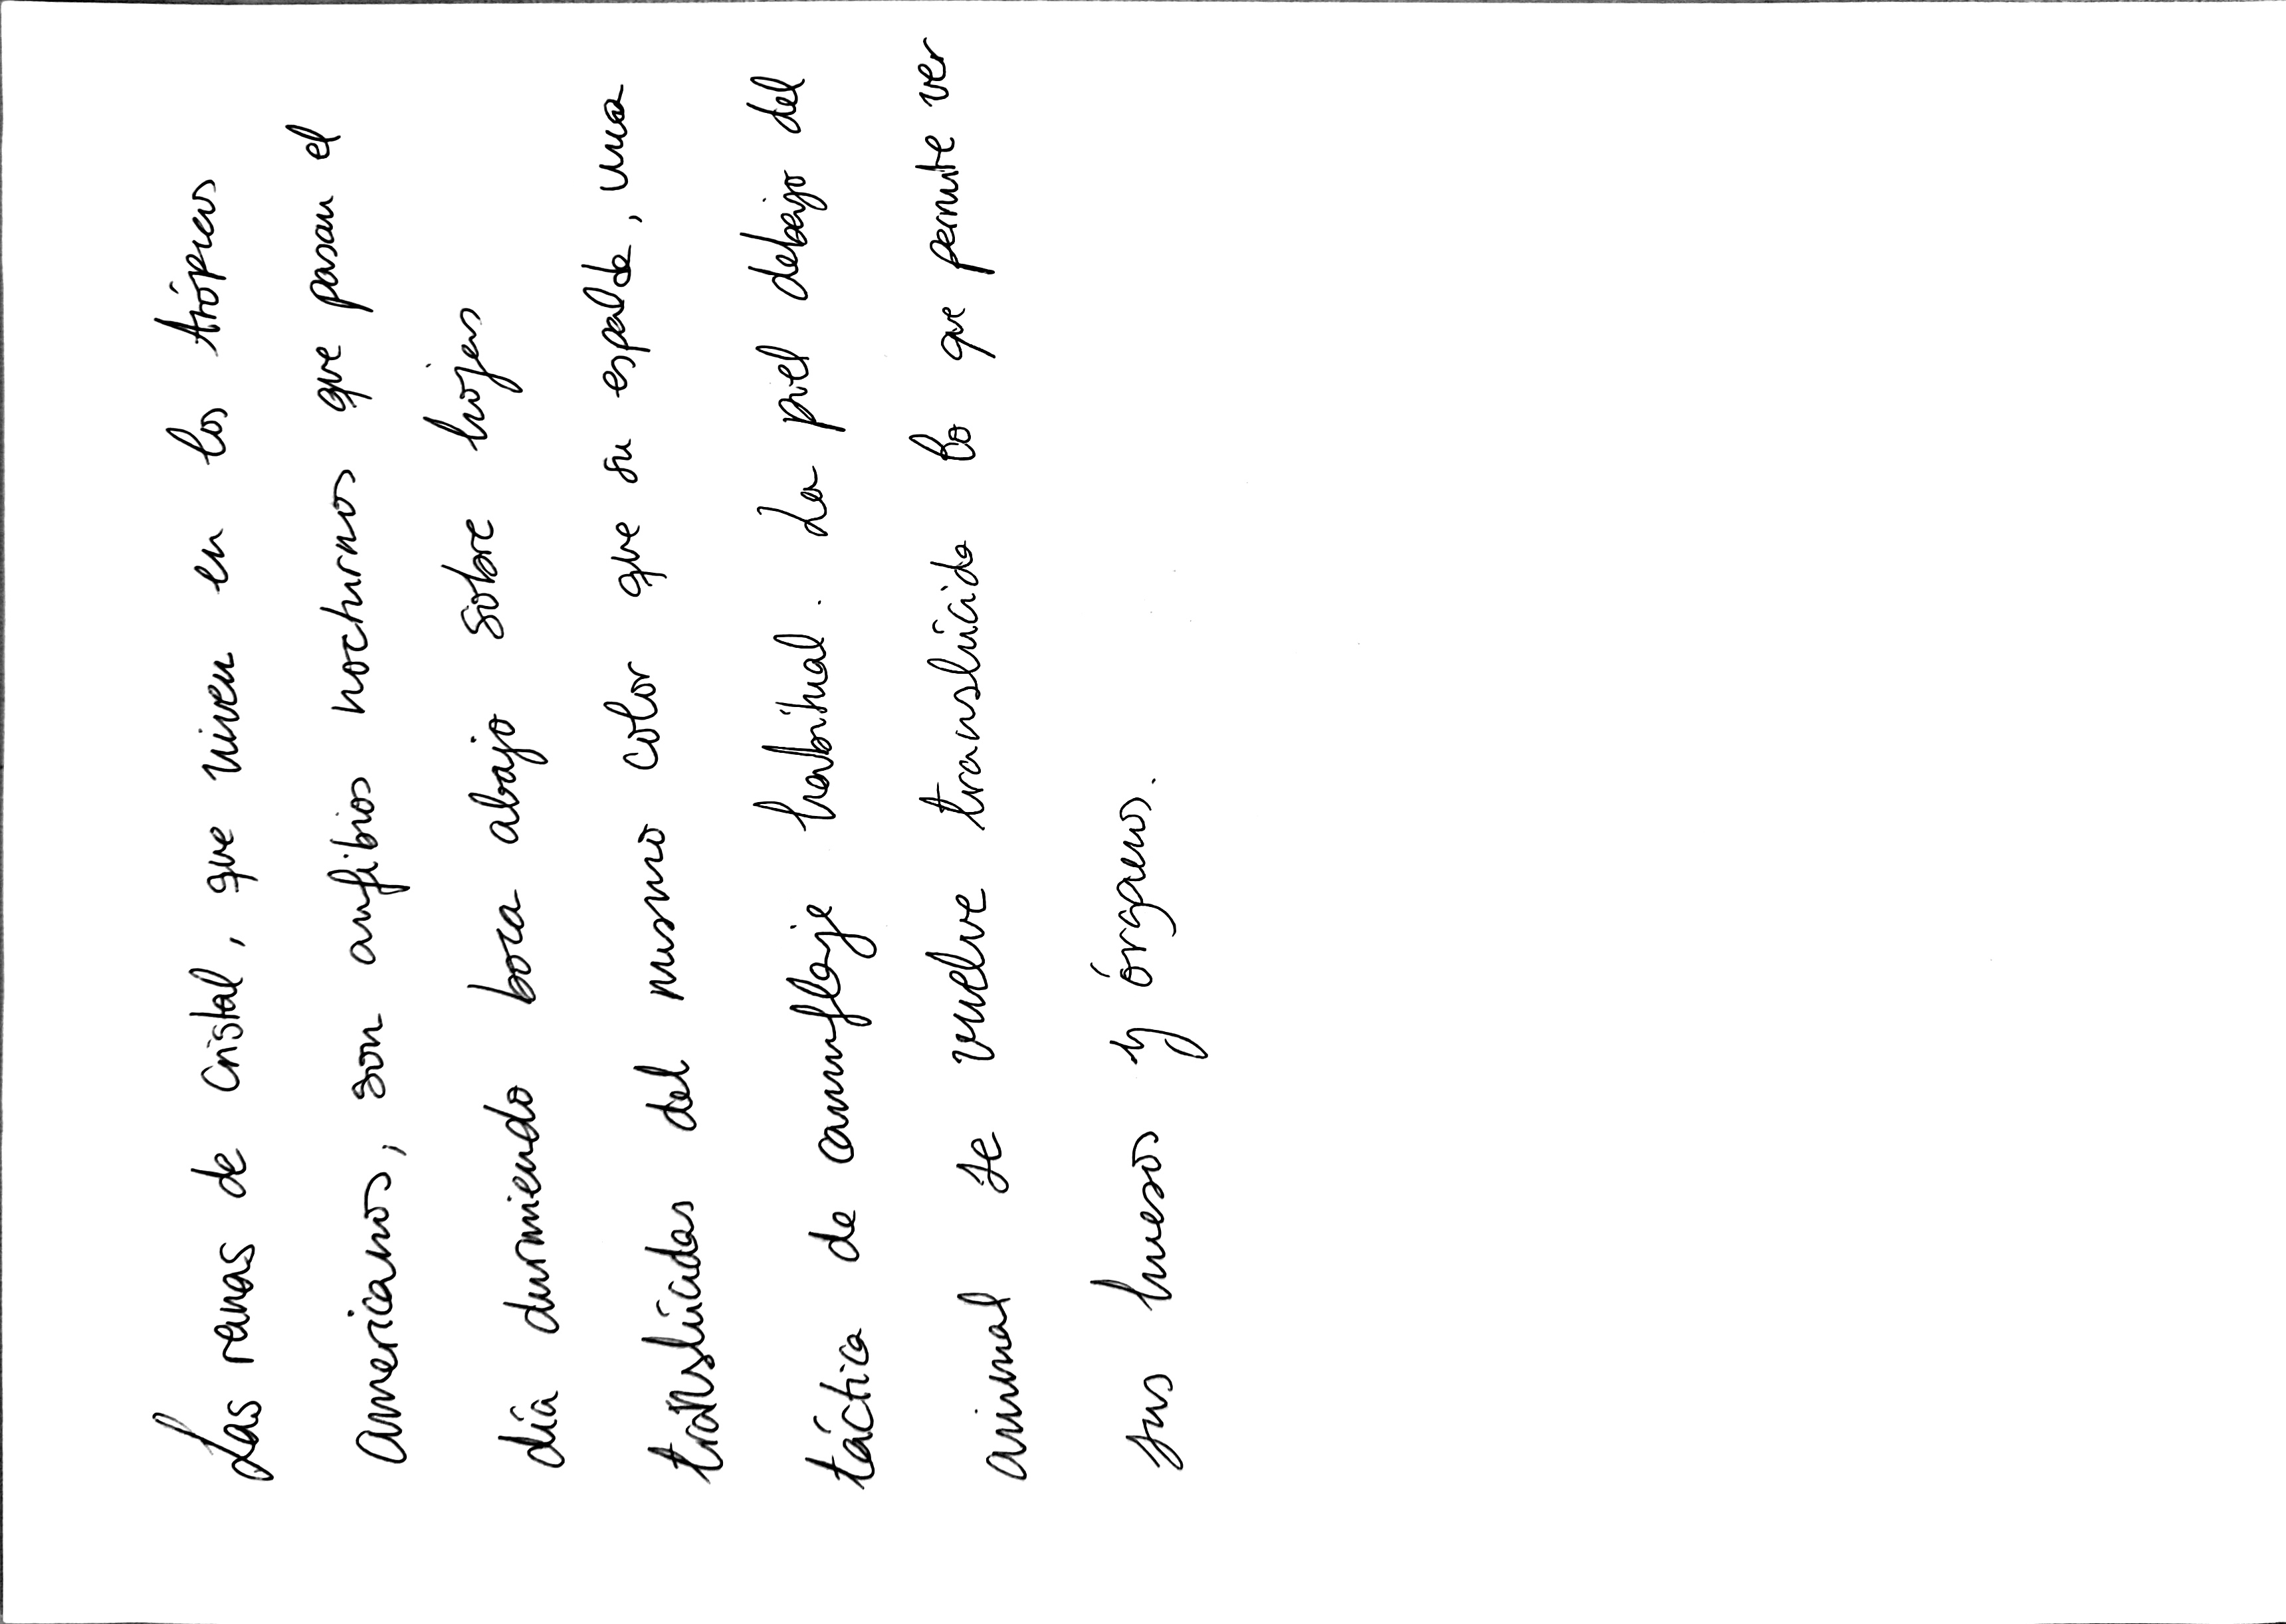 Las ranas de cristal, que viven en los trópicos
americanos, son anfibios nocturnos que pasan el
día durmiendo boca abajo sobre hojas
translúcidas del mismo color que su espalda, una
táctica de camuflaje habitual. La piel debajo del
animal se vuelve translúcida lo que permite ver
sus huesos y órganos.